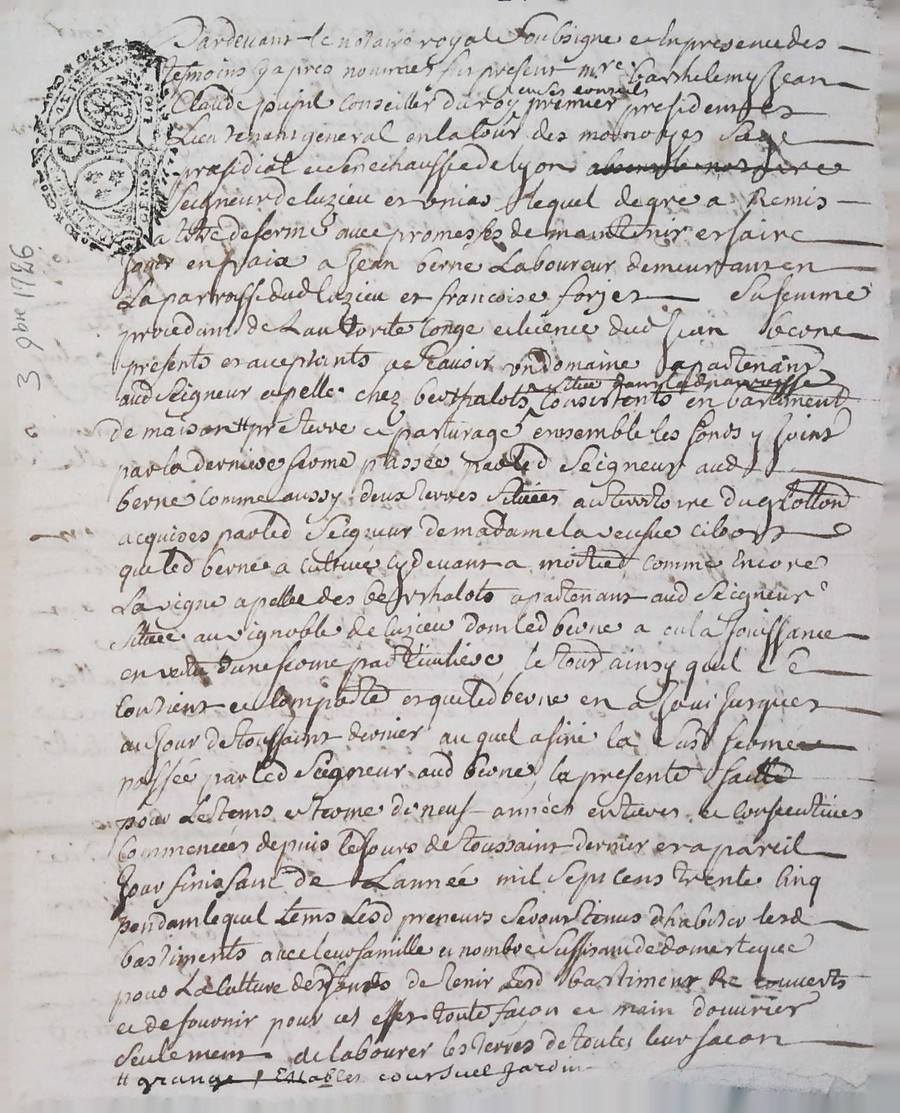 Pardevant le notaire royal soubsigne et en presence des
temoins cy apres nommes fut present mre barthelemy Jean
en ses conseils
Claude pupil Conseiller du roy premier president et
Lieutenant general en la Cour des monnoyes
presidial et senechaussée de lyon
Seigneur de luzieu et lequel de gre a Remis
a titre de ferme avec promesses de maintenir et faire
Jouir en paix a Jean berne Laboureur demeurant en
La parroisse dud luzieu et francoise forjet sa femme
procedant de L'authorité conge et licence dud Jean berne
presents et acceptants Scavoir un domaine apartenant
située dans lad parroisse
aud Seigneur apelle chez berthalots Consistents en batiment
de maison # pre terre et pasturage ensemble les fonds y Joint
par la derniere ferme passée par led Seigneur aud
berne comme aussy deux terres situées au territoire du
acquises par led Seigneur de madame la veufve
que led berne a cultivée cy devant a moitied comme Encore
La vigne apellée des berthalots apartenant aud Seigneur
située au vignoble de luzieu dont led berne a eu la Jouissance
en vertu d'une ferme particuliere, le tout ainsy quil
Contient et comporte et que led berne en a Joui Jusques
au Jour de toussaint dernier au quel a fini la susd ferme
passée par led Seigneur aud berne, la presente faitte
pour Le tems et terme de neuf années entieres et consecutives
Commencées depuis le Jours de toussaint dernier et a pareil
Jour finissant de L'année mil sept cens trente cinq
pendant lequel tems Lesd preneurs seront tenus d'habiter lesd
bastiments avec leur famille et nombre suffisant de domestique
pour La culture des fonds de tenir Lesd bastiment Re couverts
et de fournir pour cet effet toute façon et main d'ouvrier
seulement de labourer les terres de toutes leur facon
# grange Estables cour suel Jardin
3 9bre 1726